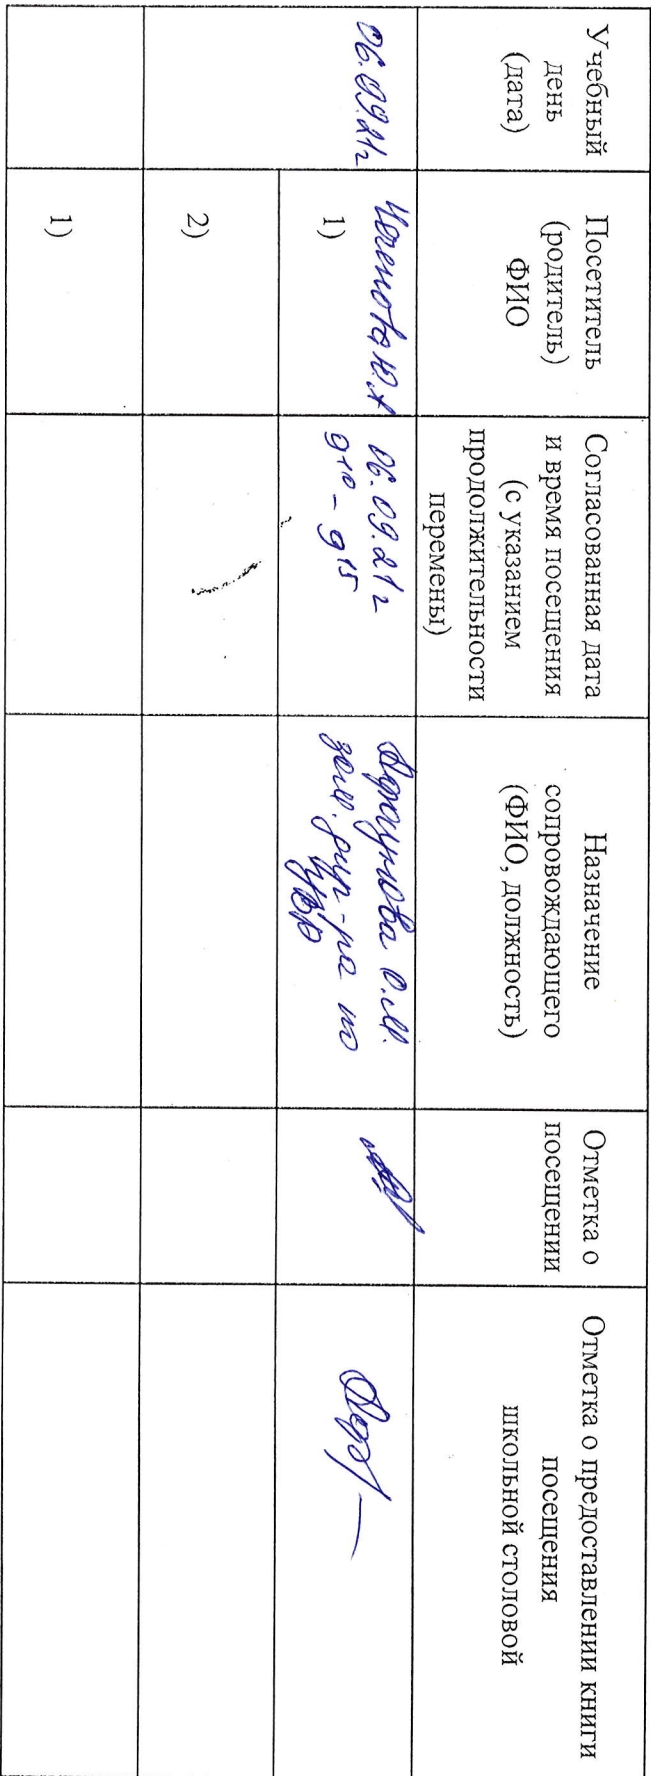 Учебный
день
(дата)
Посетитель
(родитель)
ФИО
Согласованная дата
и время посещения
(с указанием
продолжительности
перемены)
Назначение
сопровождающего
(ФИО, должность)
Отметка о
посещении
Отметка о предоставлении книги
посещения
школьной столовой
06.09.21г
1)
Ю.А
06.09.21г
910 - 915
О.М.
зам. дир-ра по
УВР
2)
1)